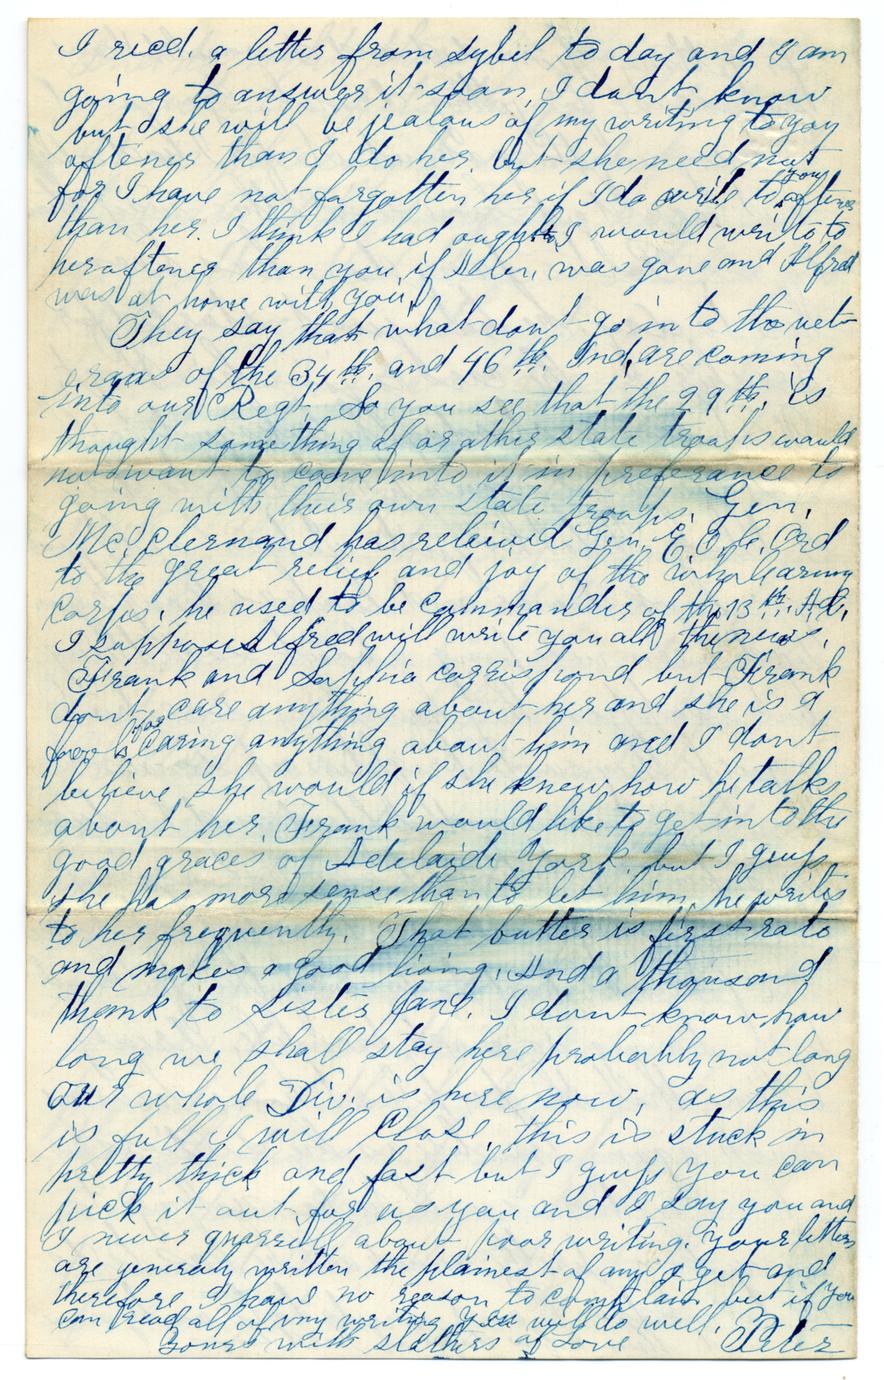 I recd. a letter from Sybel to day and I am
going to answer it soon, I dont know
but she will be jealous of my writing to you
oftener than I do her but she need not
for I have not forgotten her if I do write to you oftener
than her. I think I had ought to, I would write to
her oftener than you if Alen. was gone and Alfred
was at home with you.
They say that what dont go in to the vet-
erans of the 34th. and 46th. Ind, are coming
into our Regt. So you see that the 99th. is
thought something of or other state troops would
not want to come into it in preferance to
going with their own state troops. Gen.
Mc.Clernand has releived Gen. E. O. C. Ord
to the great relief and joy of the whole army
Corps. he used to be commander of the 13th. A.C.
I suppose Alfred will write you all the news.
Frank and Sophia corrispond but Frank
dont care anything about her and she is a
fool for caring anything about him and I dont
believe she would if she knew how he talks
about her. Frank would like to get into the
good graces of Adelaide York but I guess
she has more sense than to let him, he writes
to her frequently. That butter is first rate
and makes a good living. And a thousand
thank to Sister Jane. I dont know how
long we shall stay here probably not long
our whole Div. is here now, as this
is full I will Close, this is stuck in
pretty thick and fast but I guess you can
pick it out, for as you and I say you and
I never quarrell about poor writing. your letters
are generaly written the plainest of any I get and
therefore I have no reason to complain but if you
can read all of my writing you will do well.
Yours with slathers of Love Peter